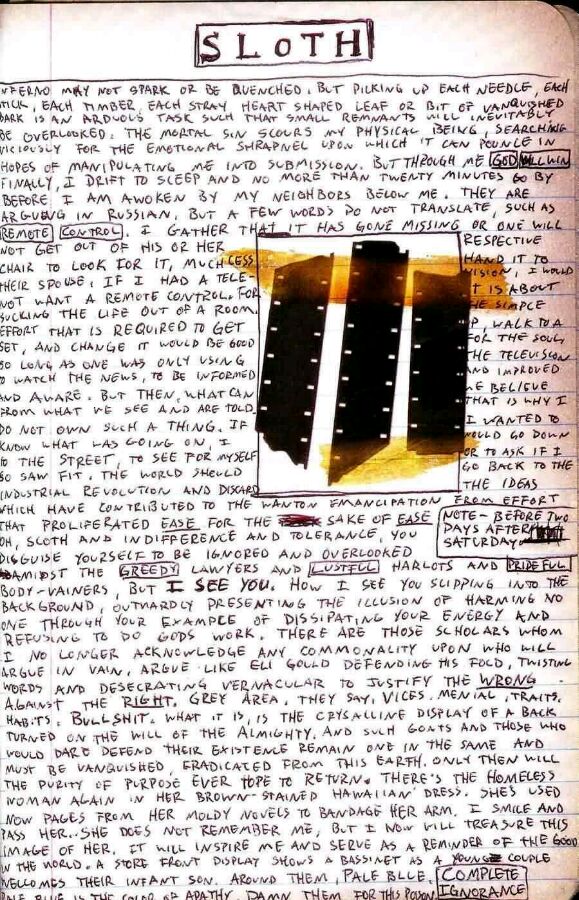 SLOTH
INFERNO MAY NOT SPARK OR BE QUENCHED. BUT PICKING UP EACH NEEDLE, EACH
TICK, EACH TIMBER, EACH STRAY HEART SHAPED LEAF OR BIT OF VANQUISHED
BARK IS AN ARDUOUS TASK SUCH THAT SMALL REMNANTS WILL INEVITABLY
BE OVERLOOKED. THE MORTAL SIN SCOURS MY PHYSICAL BEING, SEARCHING
VICIOUSLY FOR THE EMOTIONAL SHRAPNEL UPON WHICH IT CAN POUNCE IN
HOPES OF MANIPULATING ME INTO SUBMISSION. BUT THROUGH ME GOD WILL WIN
FINALLY, I DRIFT TO SLEEP AND NO MORE THAN TWENTY MINUTES GO BY
BEFORE I AM AWOKEN BY MY NEIGHBORS BELOW ME. THEY ARE
ARGUING IN RUSSIAN, BUT A FEW WORDS DO NOT TRANSLATE, SUCH AS
REMOTE CONTROL. I GATHER THAT IT HAS GONE MISSING OR ONE WILL
NOT GET OUT OF HIS OR HER RESPECTIVE
CHAIR TO LOOK FOR IT, MUCH LESS HAND IT TO
THEIR SPOUSE. IF I HAD A TELE-VISION, I WOULD
NOT WANT A REMOTE CONTROL. FOR IT IS ABOUT
SUCKING THE LIFE OUT OF A ROOM. THE SIMPLE
EFFORT THAT IS REQUIRED TO GET UP, WALK TO A
SET, AND CHANGE IT WOULD BE GOOD FOR THE SOUL,
SO LONG AS ONE WAS ONLY USING THE TELEVISION
TO WATCH THE NEWS, TO BE INFORMED AND IMPROVED
AND AWARE. BUT THEN, WHAT CAN WE BELIEVE
FROM WHAT WE SEE AND ARE TOLD. THAT IS WHY I
DO NOT OWN SUCH A THING. IF I WANTED TO
KNOW WHAT WAS GOING ON, I WOULD GO DOWN
TO THE STREET, TO SEE FOR MYSELF OR TO ASK IF I
SO SAW FIT. THE WORLD SHOULD GO BACK TO THE
INDUSTRIAL REVOLUTION AND DISCARD THE IDEAS
WHICH HAVE CONTRIBUTED TO THE WANTON EMANCIPATION FROM EFFORT
THAT PROLIFERATED EASE FOR THE SAKE OF EASE
NOTE - BEFORE TWO
DAYS AFTER
SATURDAY
OH, SLOTH AND INDIFFERENCE AND TOLERANCE, YOU
DISGUISE YOURSELF TO BE IGNORED AND OVERLOOKED
AMIDST THE GREEDY LAWYERS AND LUSTFUL HARLOTS AND PRIDEFULL
BODY-VAINERS, BUT I SEE YOU. HOW I SEE YOU SLIPPING INTO THE
BACKGROUND, OUTWARDLY PRESENTING THE ILLUSION OF HARMING NO
ONE THROUGH YOUR EXAMPLE OF DISSIPATING YOUR ENERGY AND
REFUSING TO DO GODS WORK. THERE ARE THOSE SCHOLARS WHOM
I NO LONGER ACKNOWLEDGE ANY COMMONALITY UPON WHO WILL
ARGUE IN VAIN, ARGUE LIKE ELI GOULD DEFENDING HIS FOLD, TWISTING
WORDS AND DESECRATING VERNACULAR TO JUSTIFY THE WRONG
AGAINST THE RIGHT, GREY AREA, THEY SAY, VICES. MENIAL, TRAITS.
HABITS. BULLSHIT. WHAT IT IS, IS THE CRYSALLINE DISPLAY OF A BACK
TURNED ON THE WILL OF THE ALMIGHTY. AND SUCH GOATS AND THOSE WHO
WOULD DARE DEFEND THEIR EXISTENCE REMAIN ONE IN THE SAME AND
MUST BE VANQUISHED, ERADICATED FROM THIS EARTH. ONLY THEN WILL
THE PURITY OF PURPOSE EVER HOPE TO RETURN. THERE'S THE HOMELESS
WOMAN AGAIN IN HER BROWN-STAINED HAWAIIAN DRESS. SHE'S USED
NOW PAGES FROM HER MOLDY NOVELS TO BANDAGE HER ARM. I SMILE AND
PASS HER. SHE DOES NOT REMEMBER ME, BUT I NOW WILL TREASURE THIS
IMAGE OF HER. IT WILL INSPIRE ME AND SERVE AS A REMINDER OF THE GOOD
IN THE WORLD. A STORE FRONT DISPLAY SHOWS A BASSINET AS A YOUNG COUPLE
WELCOMES THEIR INFANT SON. AROUND THEM, PALE BLUE.
PALE BLUE IS THE COLOR OF APATHY. DAMN THEM FOR THIS POISON.
COMPLETE
IGNORANCE